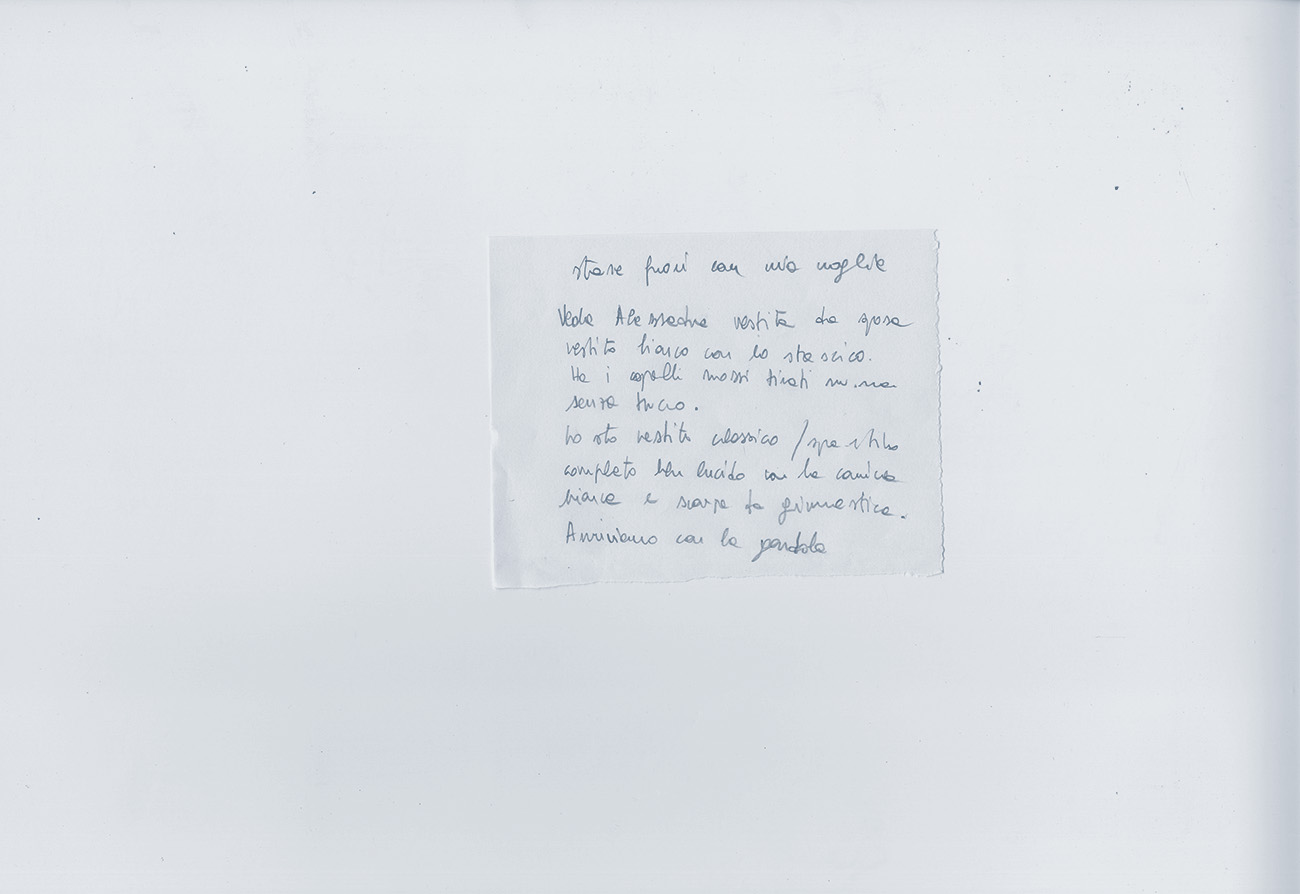 stare fuori con mia moglie
Vedo Alessadra vestita da sposa
vestito bianco con lo strascico.
Ha i capelli mossi tirati su, ma
senza trucco.
Io sto vestito classico / spartito
completo blu lucido con la camicia
bianca e scarpe da ginnastica.
Arriviamo con la gondola